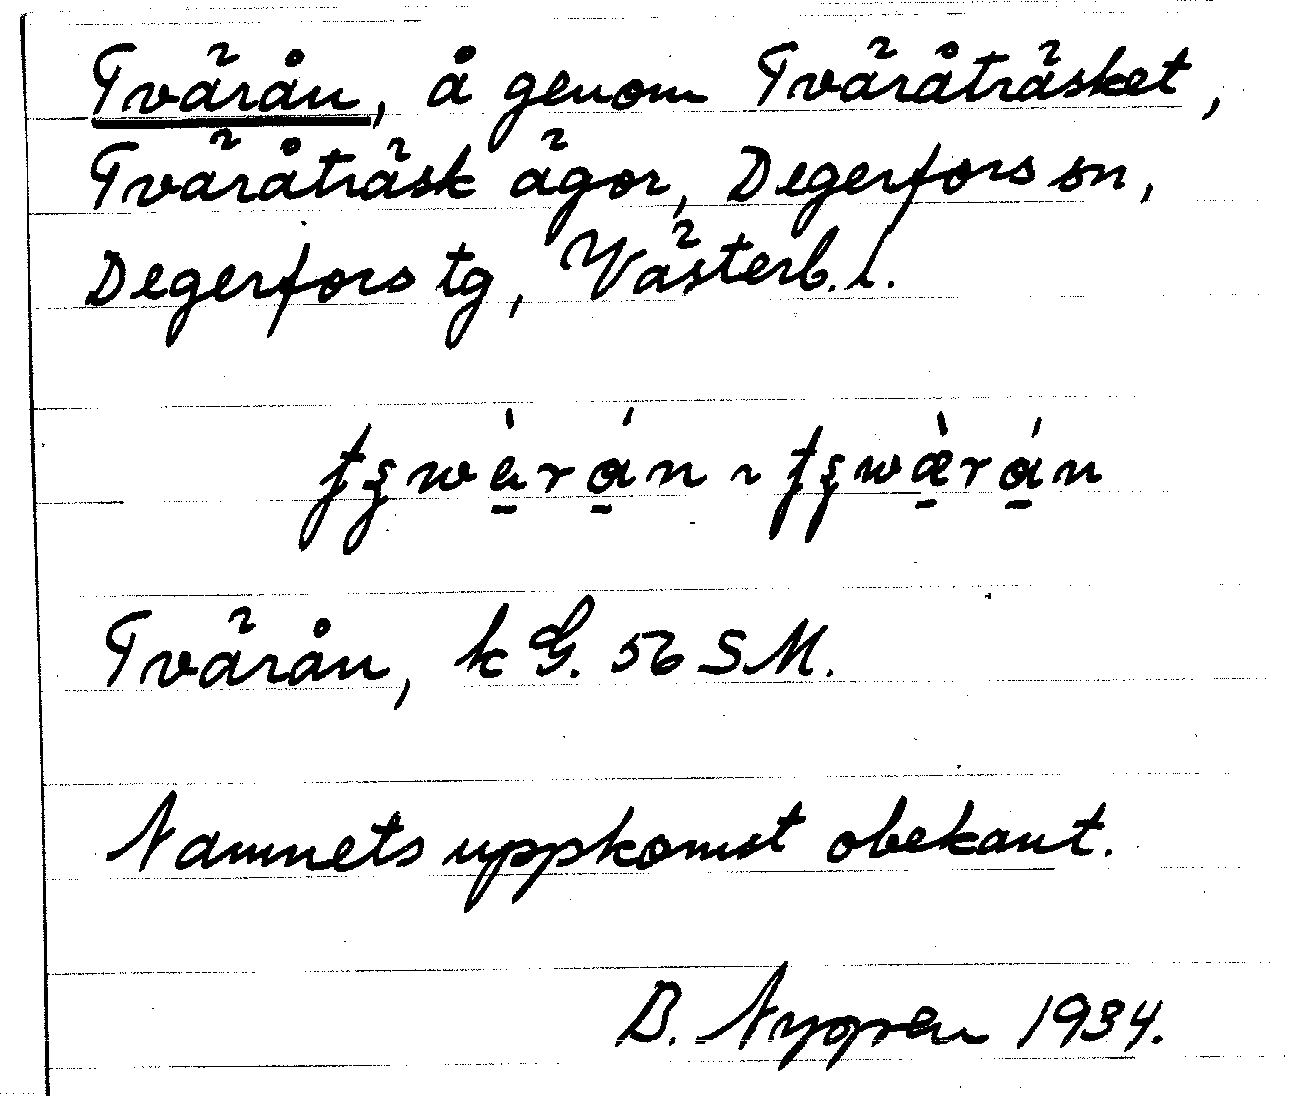 Tvärån, å genom Tväråträsket,
Tväråträsk ägor, Degerfors sn,
Degerfors tg, Västerb. l.
Tvärån, k G. 56 SM.
Namnets uppkomst obekant.
B. Nygren 1934.